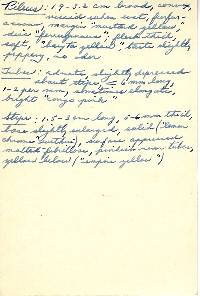 Pileus: 1.9-3.2 cm broad, convex,
viscid when wet, 
margin "mustard yellow"
disc "ferruginous"; flesh thick,
soft, "baryta yellow"; taste slightly
peppery, no odor
Tubes: adnate, slightly depressed
about stipe, 6 mm long,
1-2 per mm, sometimes elongate,
bright "congo pink"
Stipe: 1.5-3 cm long, 5-6 mm thick,
base slightly enlarged, solid ("lemon
chrome" within), surface appressed
matted-fibrillose, pinkish near tubes,
yellow below ("empire yellow")